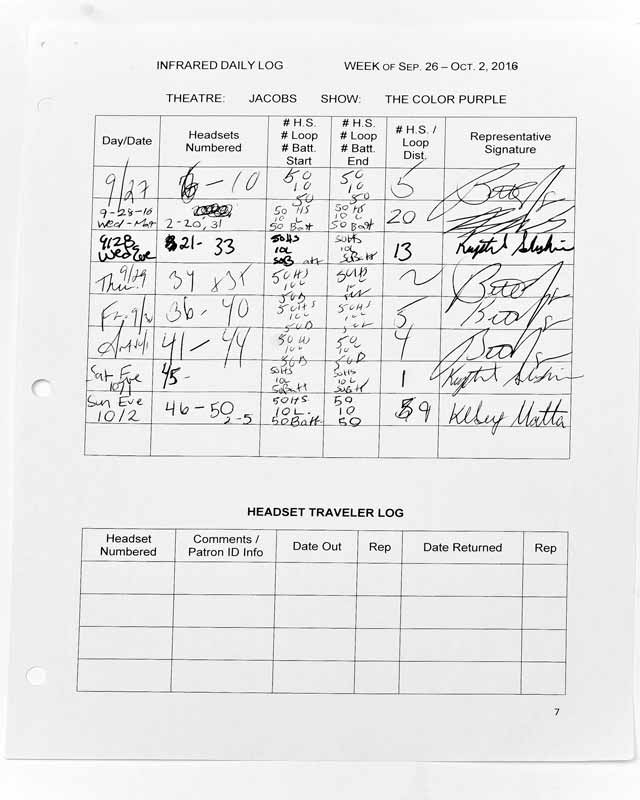 INFRARED DAILY LOG WEEK OF SEP. 26 – OCT. 2, 2016
THEATRE: JACOBS SHOW: THE COLOR PURPLE
Day/Date Headsets Numbered # H.S. # Loop # Batt. Start # H.S. # Loop # Batt. End # H.S. / Loop Dist. Representative Signature
9/27 6 – 10 50 10 50 50 10 50 5
9-28-16 Wed - Mat 2-20, 31 50 HS 10 L 50 Batt 50 HS 10 L 50 Batt 20
9/28 Wed Eve 21 - 33 50HS 10L 50B att 50HS 10L 50Batt 13
Thu. 9/29 34 50HS 2
36 - 40 50HS 50HS 5
41 - 44 50 4
Sat Eve 10/1 45 - 50HS 10L 50Batt 50HS 10L 50Batt 1
Sun Eve 10/2 46 – 50 2-5 50HS 10L. 50Batt 50 10 50 9 Kelsey Matta
HEADSET TRAVELER LOG
Headset Numbered Comments / Patron ID Info Date Out Rep Date Returned Rep
7